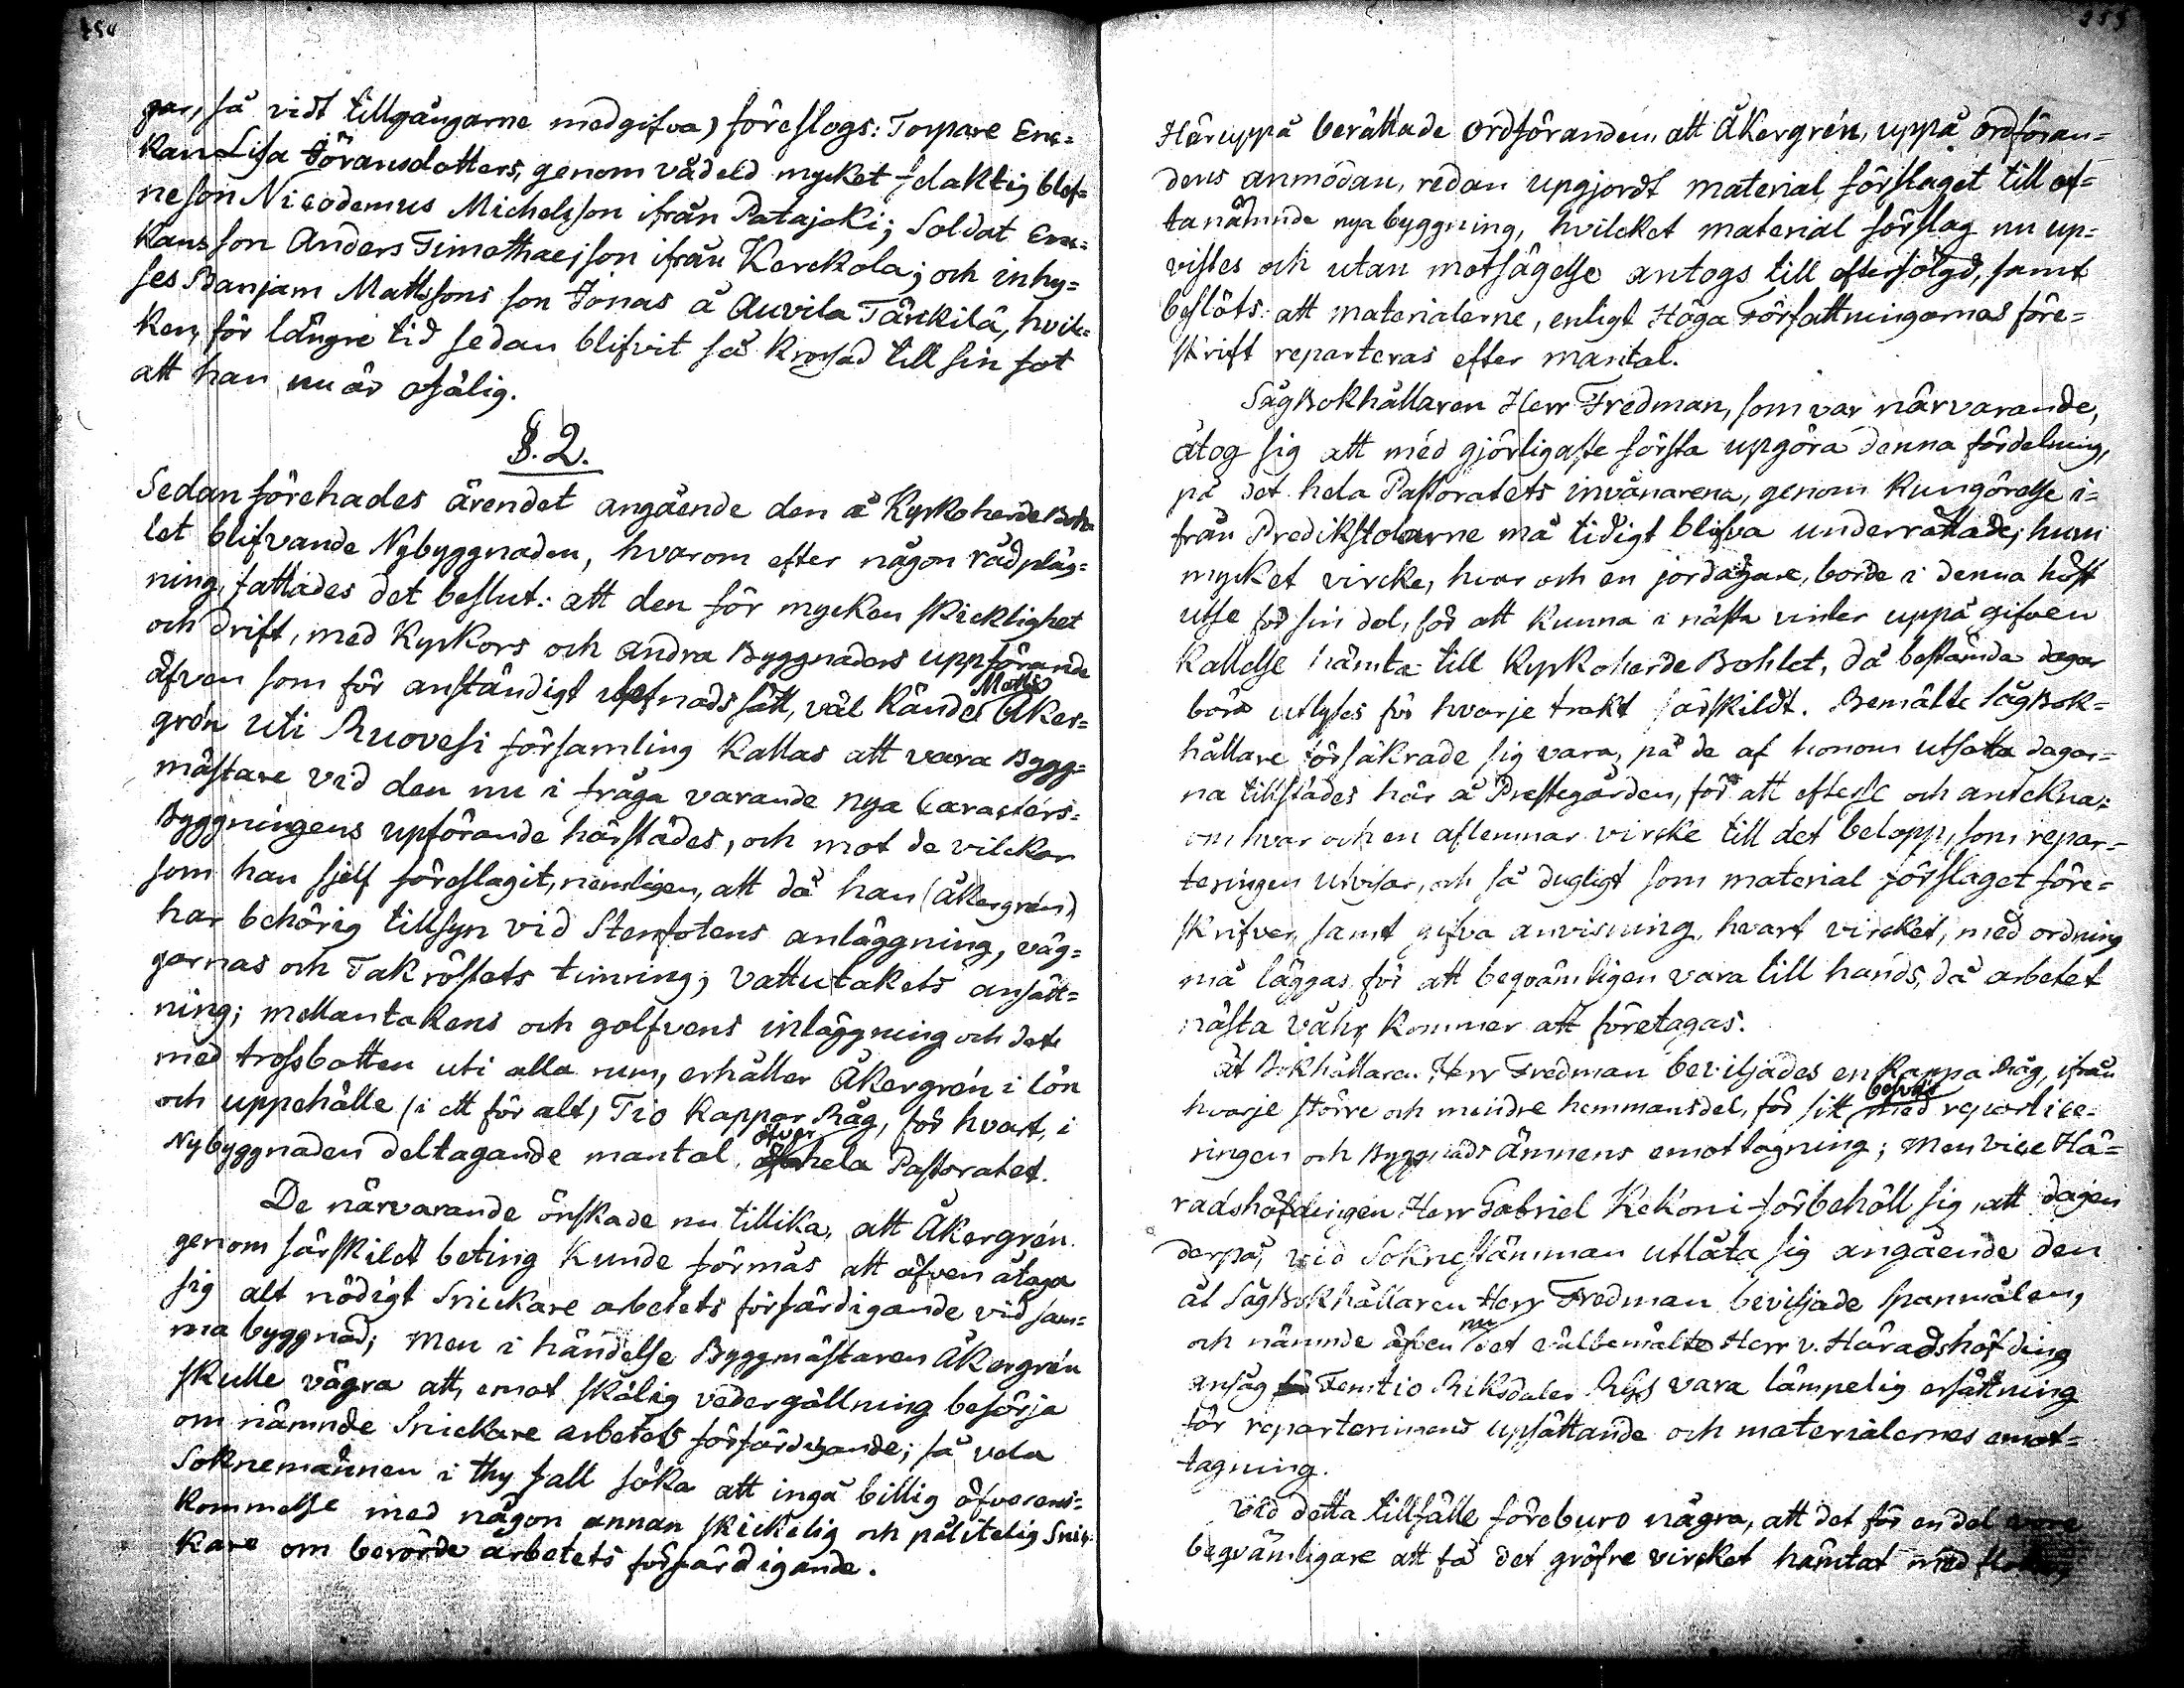 gar, så vidt tillgångarne medgifva) föreslogs: Torpare Enc=
kan Lisa Göransdotters, genom vådeld mycket skaktig blef=
ne son Nicodemus Michelsson ifrån Patajoki; Soldat Enc=
kans son Anders Timothaei son ifrån Kerckola; och inhy=
ses Banjam Mattssons son Jonas å Auvila Tärkilä, hvil=
ken, för längre tid sedan blifvit så krossad till sin fot
att han nu är ofälig.
§. 2.
Sedan förehades ärendet angående den å Kyrkoherde Boh
let blifvande Nybyggnaden, hvarom efter någon rådpläg=
ning, fattades det beslut: att den för mycken skicklighet
och drift, med Kyrkors och andra Byggnaders uppförande
äfven som för anständigt lefnads sätt, väl kände Matts Åker=
grén uti Ruovesi församling kallas att vara Bygg=
mästare vid den nu i fråga varande nya Caracters=
Byggningens upförande härstädes, och mot de vilckor
som han sjelf föreslagit, nemligen, att då han (Åkergrén)
har behörig tillsyn vid Stenfotens anläggning, väg=
garnas och Takröstets timring; Vattutakets ansätt=
ning; mellantakens och golfvens inläggning och det
med trossbotten uti alla rum, erhåller Åkergrén i lön
och uppehälle (i ett för alt) Tio Kappar Råg, för hvart, i
Nybyggnaden deltagande mantal, öfver hela Pastoratet.
De närvarande önskade nu tillika, att Åkergrén
genom särskildt beting kunde förmås att äfven åtaga
sig alt nödigt Snickare arbetets förfärdigande vid sam=
ma byggnad; Men i händelse Byggmästaren Åkergrén
skulle vägra att, emot skälig vedergällning besörja
om nämnde Snickare arbetets förfärdigande; så vela
Soknemännen i thy fall söka att ingå billig öfverens=
kommelse med någon annan skickelig och pålitelig Snic
kare om berörde arbetets förfärdigande.
Häruppå berättade Ordföranden, att Åkergrén, uppå Ordföran=
dens anmodan, redan upgjordt material förslaget till of=
tanämnde nya byggning, hvilcket material förslag nu up=
vistes och utan motsägelse antogs till efterfölgd, samt
beslöts: att materialerne, enligt Höga Författningarnas före=
skrift reparteras efter mantal.
SågBokhållaren Herr Fredman, som var närvarande,
åtog sig att med gjörligaste första upgöra denna fördelning,
på det hela Pastoratets invånarena, genom Kungörelse i=
från Predikstolarne må tidigt blifva underrättade, huru
mycket vircke, hvar och en jordägare, borde i denna höst
utse för sin del, för att kunna i nästa vinter uppå gifven
kallelse hämta till Kyrkoherde Bohlet, då bestämda dagar
böra utlyses för hvarje trakt särskildt. Bemälte SågBok=
hållare försäkrade sig vara, på de af honom utsatta dagar=
na tillstädes här å Prestegården, för att efterse och anteckna:
om hvar och en aflemnar vircke till det belopp, som repar=
teringen utvisar, och så dugligt som material förslaget före=
skrifver, samt gifva anvisning, hvart vircket, med ordning
må läggas för att beqvämligen vara till hands, då arbetet
nästa våhr, kommer att företagas.
Åt Bokhållaren Herr Fredman beviljades en Kappa Råg, ifrån
hvarje större och mindre hemmansdel, för sitt besvär med repartise=
ringen och Byggnads Ämnens emottagning; Men Vice Hä=
radshöfdingen Herr Gabriel Kekoni förbehöll sig, att dagen
derpå, vid Soknestämman utlåta sig angående den
åt SågBokhållaren Herr Fredman beviljade spanmålen,
och nämnde äfven nu det välbemälte Herr v. Häradshöfding
ansåg Femtio Riksdaler Rgs vara lämpelig ersättning
för reparteringens upsättande och materialernes emot=
tagning.
Vid detta tillfälle föreburo några, att det för en del vore
beqvämligare att få det gröfre vircket hämtat med